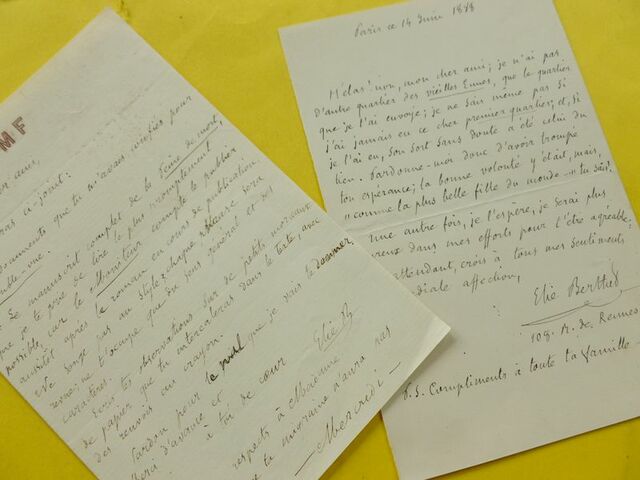 MF
ras ci-joint:
documents que tu m'avais confiés pour
Le manuscrit complet de la Peine de mort,
que je te prie de lire le plus promptement
possible, car le Moniteur compte le publier
aussitôt après le roman en cours de publication.
Ne songe pas au style; chaque
revu; ne t'occupe que du sens général et des
caractères.
Ecris tes observations sur de petits morceaux
de papier que tu intercaleras dans le texte, avec
des renvois au crayon.
Pardon pour le mal que je vais te donner,
merci d'avance et
à toi de coeur
Elie B
respects à Madame
ta migraine n'aura pas
Mercredi —
Paris ce 14 Juin 1878
Hélas! non, mon cher ami; je n'ai pas
d'autre quartier des vieilles Eunes, que le quartier
que je t'ai envoyé; je ne sais même pas si
j'ai jamais eu ce cher premier quartier; et, si
je l'ai eu, son sort sans doute a été celui du
tien. Pardonne-moi donc d'avoir trompé
ton espérance; la bonne volonté y était, mais,
"comme la plus belle fille du monde —" tu sais!
Une autre fois, je l'espère, je serai plus
heureux dans mes efforts pour t'être agréable;
attendant, crois à tous mes sentiments
diale affection,
Elie Berthet
108. R. de Rennes
P.S. Compliments à toute ta famille —